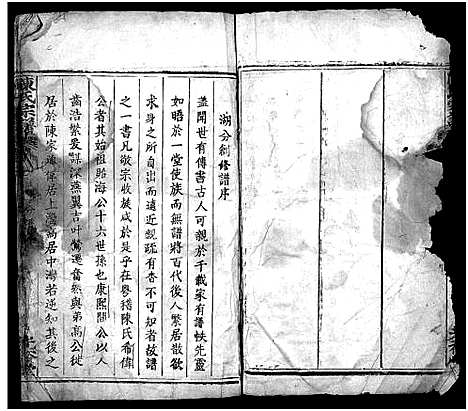 湖分創修譜序
蓋聞世有傳書古人可親於千載家有譜帙先靈
如晤於一堂使族而無譜將百代後人繁居散欲
求身之所自出而遠近親疏有杳不可知者故譜
之一書凡敬宗收族咸於是乎在粤稽陳氏希偉
公者其始祖貽海公十六世孫也康熙間公以人
齒浩繁爰謀深燕翼吉叶鶯遷奮然與弟高公徙
居於陳家邊偉居上灣高居中灣若逆知其後之
陳氏宗譜